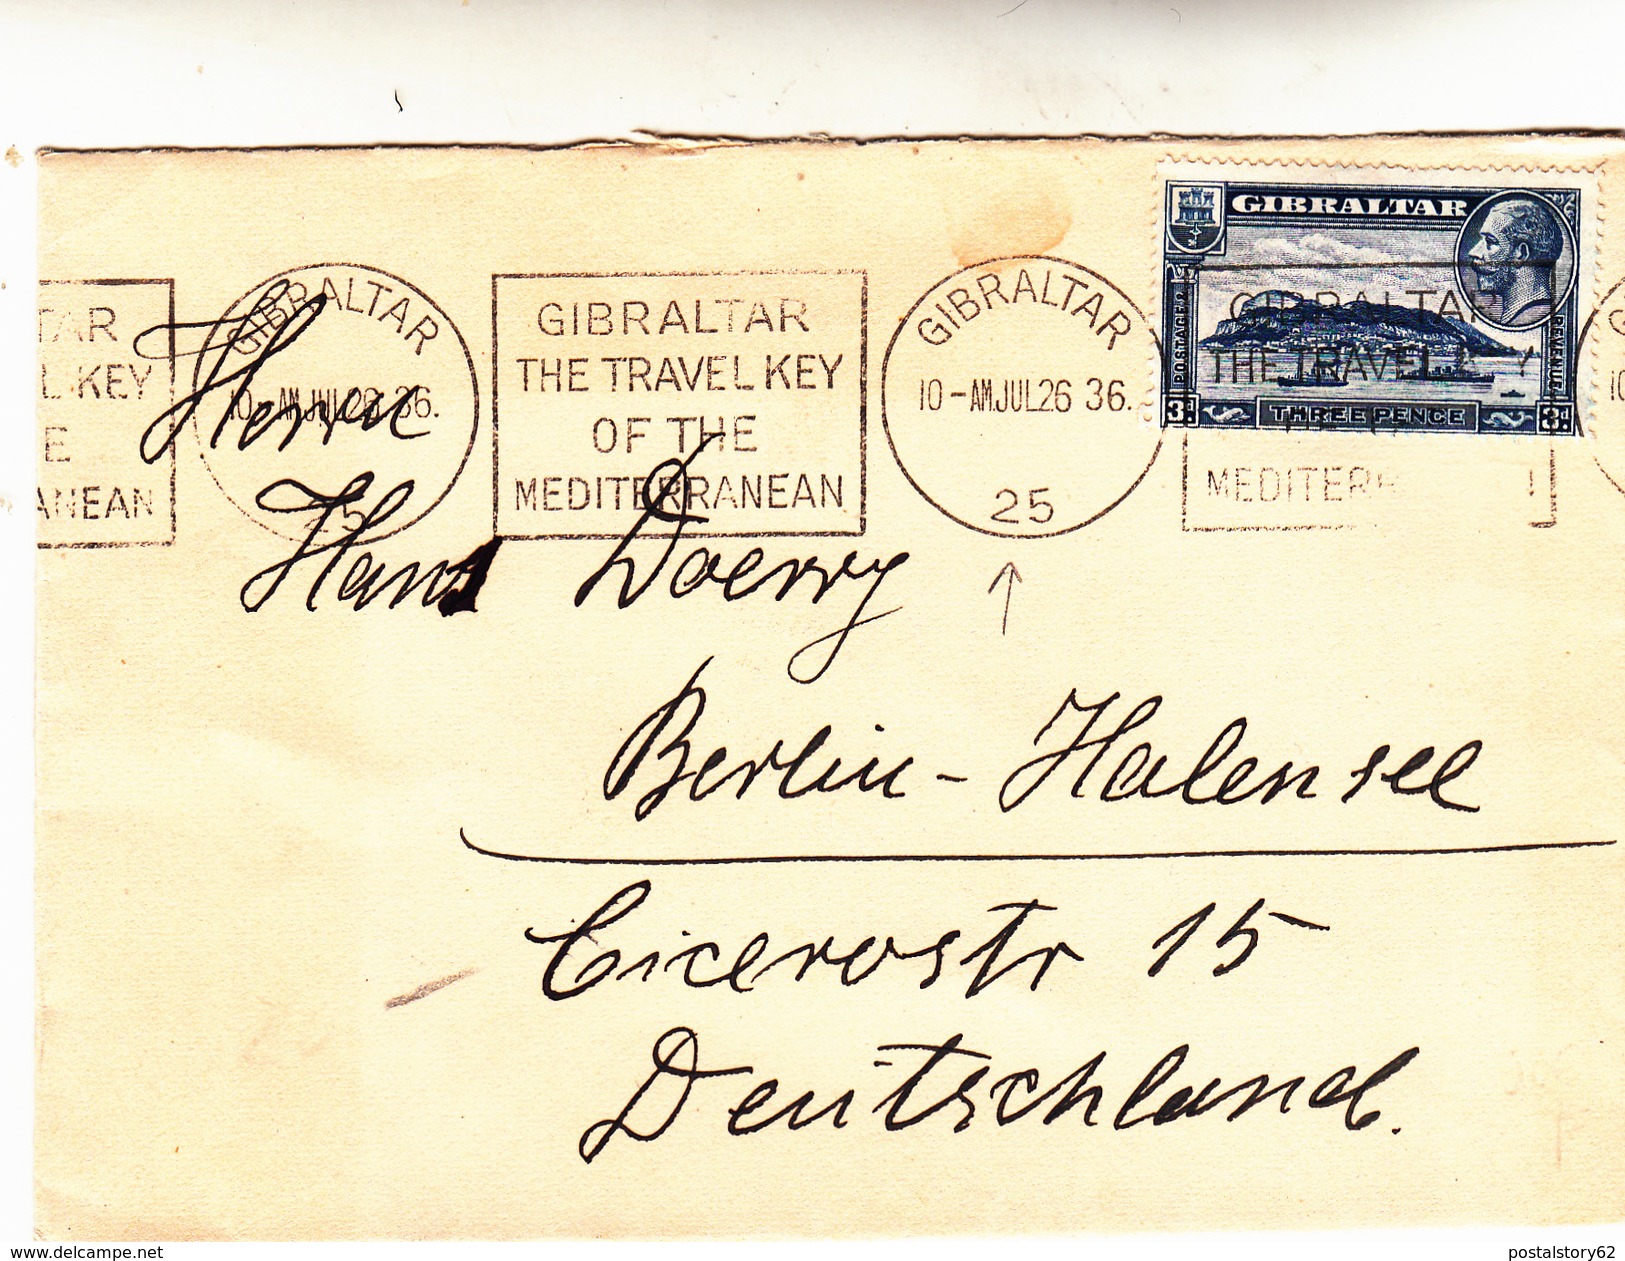 TAR
L KEY
E
ANEAN
GIBRALTAR
10-AM JUL 26 36.
25
GIBRALTAR
THE TRAVEL KEY
OF THE
MEDITERRANEAN
GIBRALTAR
10-AM JUL 26 36.
25
GIBRALTAR
POSTAGE &
REVENUE
3d
THREE PENCE
3d
GIBRALTAR
THE TRAVEL KEY
MEDITERR
10
Herrn
Hans Doerry
Berlin-Halensee
Cicerostr 15
Deutschland.
www.delcampe.net
postalstory62